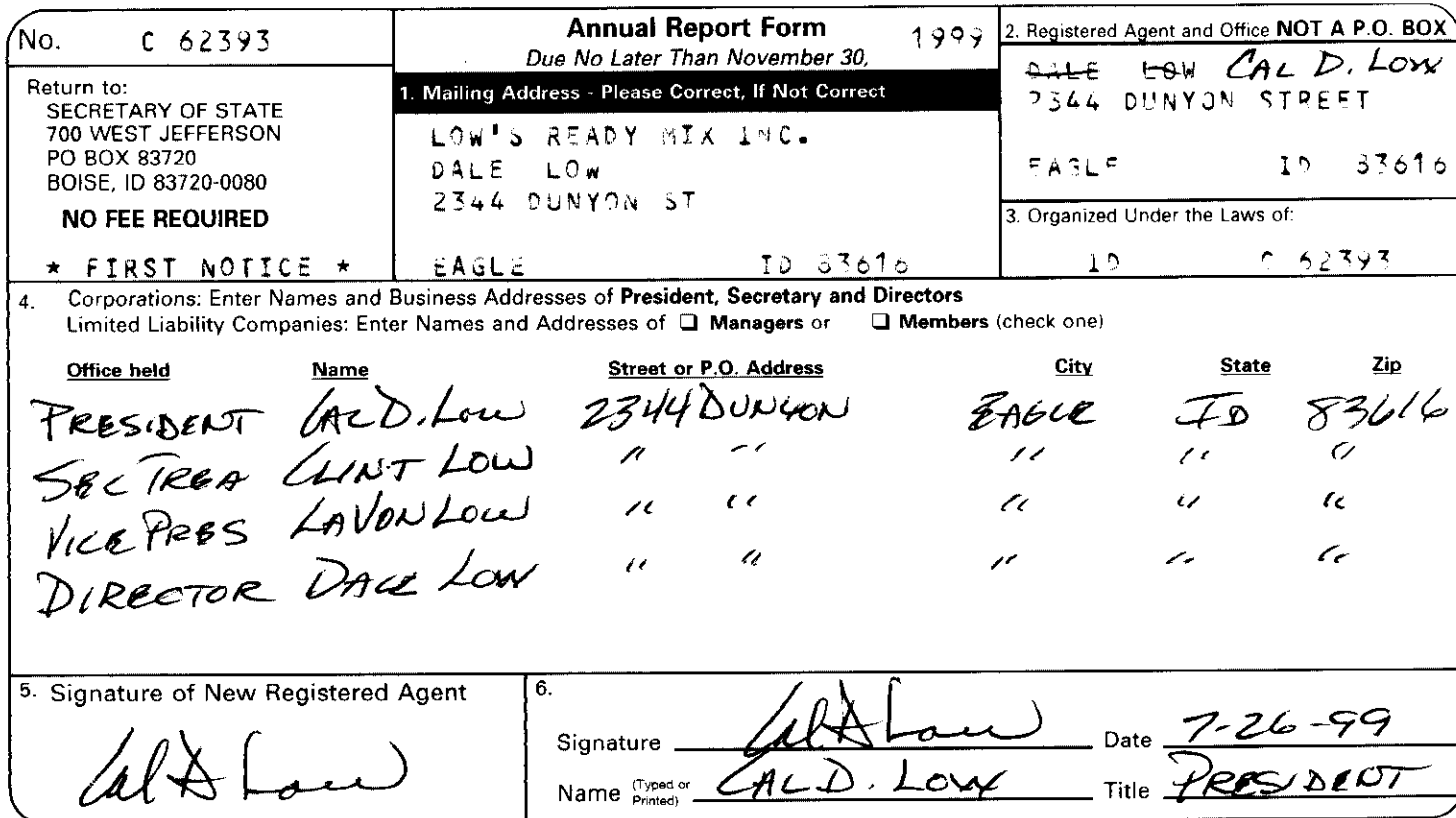 No. C 62393
Return to:
SECRETARY OF STATE
700 WEST JEFFERSON
PO BOX 83720
BOISE, ID 83720-0080
NO FEE REQUIRED
* FIRST NOTICE *
Annual Report Form 1999
Due No Later Than November 30,
1. Mailing Address - Please Correct, If Not Correct
LOW'S READY MIX INC.
DALE LOW
2344 DUNYON ST
EAGLE ID 83616
2. Registered Agent and Office NOT A P.O. BOX
DALE LOW CAL D. LOW
2344 DUNYON STREET
EAGLE ID 83616
3. Organized Under the Laws of:
ID C 62393
4. Corporations: Enter Names and Business Addresses of President, Secretary and Directors
Limited Liability Companies: Enter Names and Addresses of ❑ Managers or ❑ Members (check one)
Office held Name Street or P.O. Address City State Zip
PRESIDENT CAL D. LOW 2344 DUNYON EAGLE ID 83616
SEC TREA CLINT LOW " " " " "
VICE PRES LAVON LOW " " " " "
DIRECTOR DALE LOW " " " " "
5. Signature of New Registered Agent
Cal D Low
6.
Signature Cal D Low Date 7-26-99
Name (Typed or Printed) CAL D. LOW Title PRESIDENT